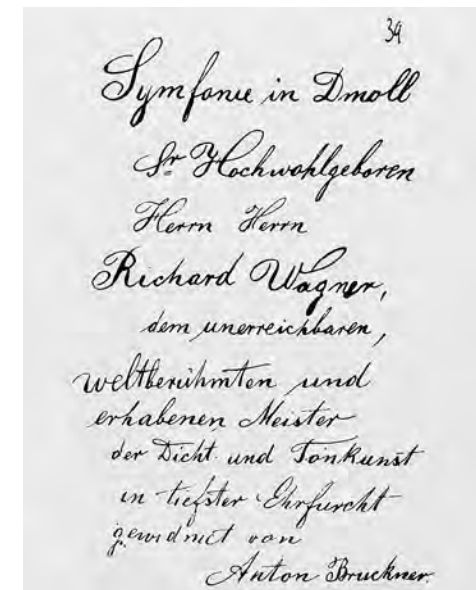 39
Symfonie in Dmoll
Sr Hochwohlgeboren
Herrn Herrn
Richard Wagner,
dem unerreichbaren,
weltberühmten und
erhabenen Meister
der Dicht und Tonkunst
in tiefster Ehrfurcht
gewidmet von
Anton Bruckner.